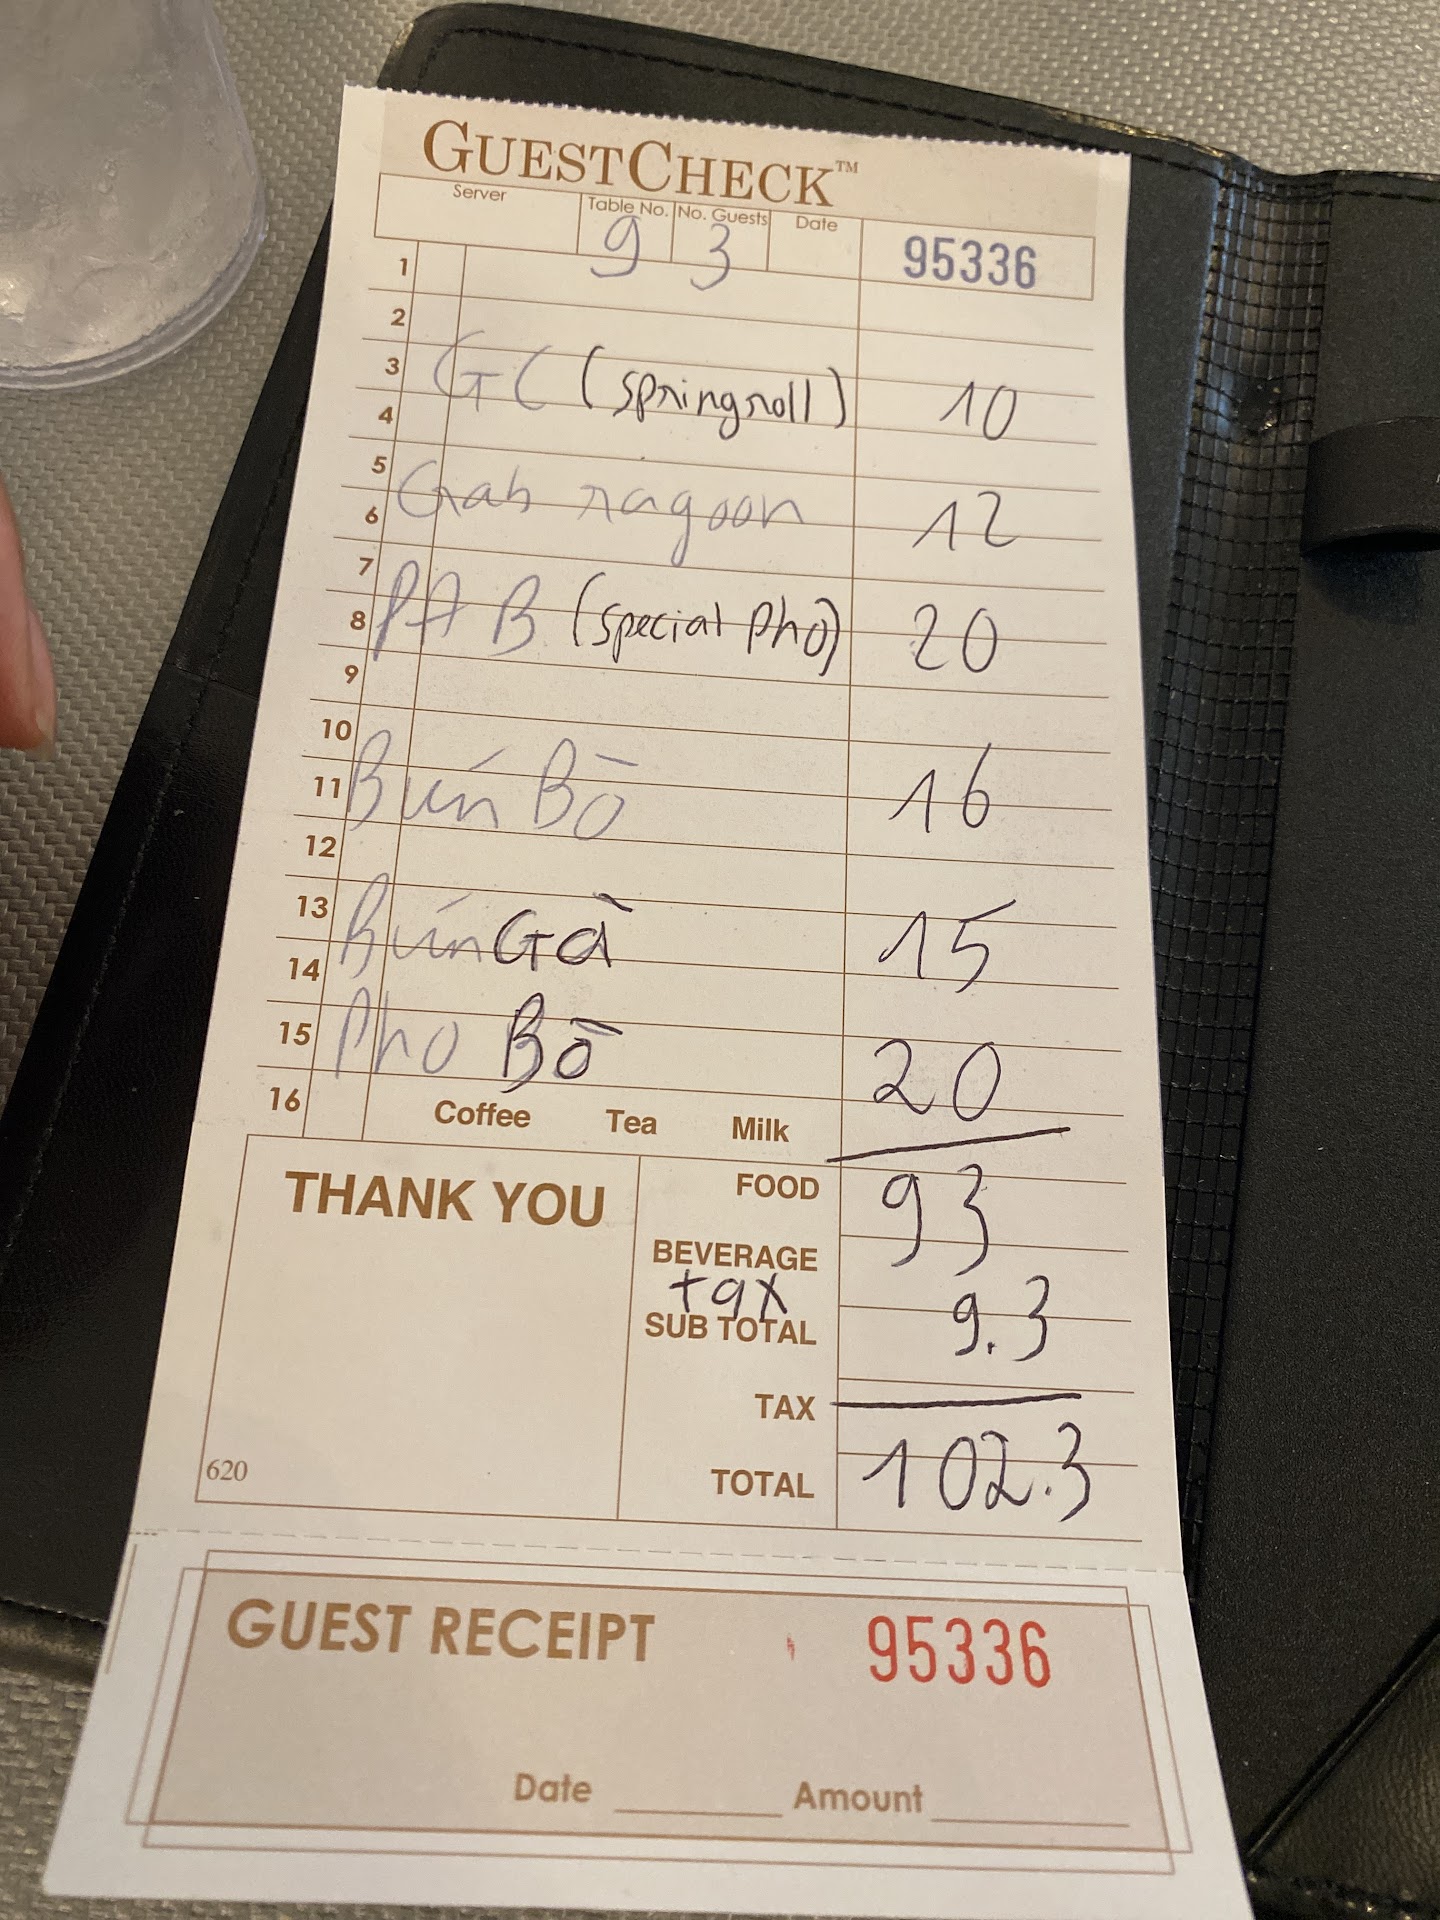 GUESTCHECK™
Server Table No. No. Guests Date
9 3 95336
1
2
3 GC (springroll) 10
4
5
6 Crab ragoon 12
7
8 PAB (special Pho) 20
9
10
11 Bún Bò 16
12
13
14 Bún Gà 15
15 Pho Bò 20
16 Coffee Tea Milk
THANK YOU
FOOD 93
BEVERAGE
tax 9.3
SUB TOTAL
TAX
TOTAL 102.3
620
GUEST RECEIPT 95336
Date Amount